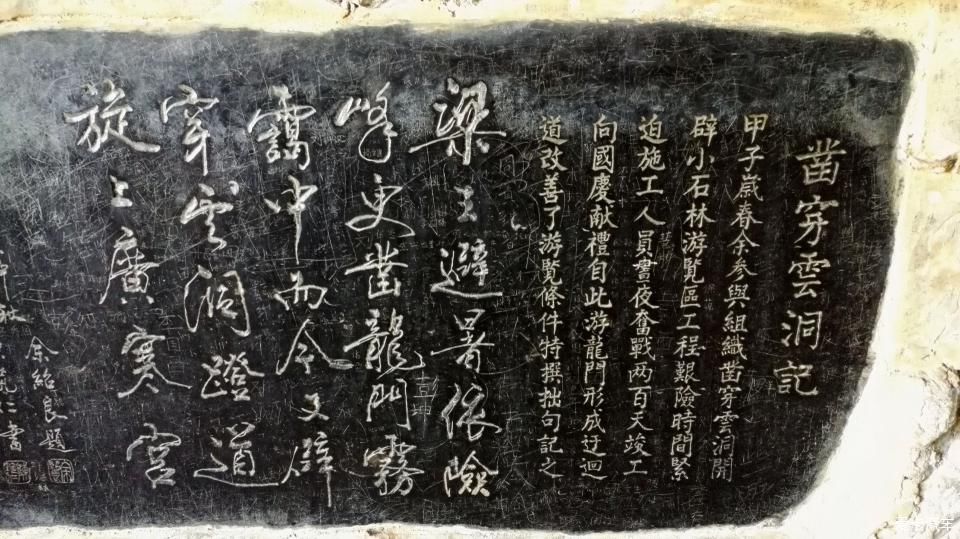 凿穿雲洞記
甲子歲春余参與組織凿穿雲洞開
辟小石林游覽區工程艰險時間緊
迫施工人員晝夜奮戰两百天竣工
向國慶献禮自此游龍門形成迂迴
道改善了游覽條件特撰拙句記之
梁王避暑依險
峰更凿龍門霧
靄中而今又辟
穿雲洞蹬道
旋上廣寒宮
余紹良題